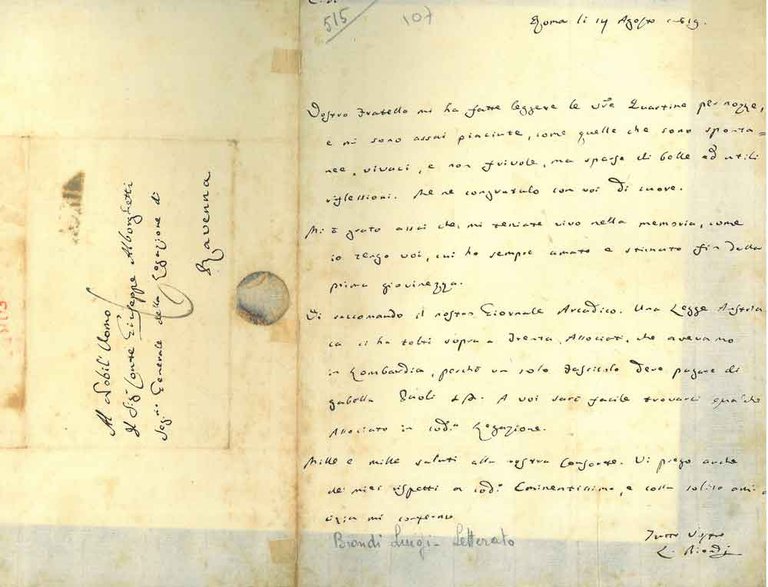 Al Nobil' Uomo
Il Sig.r Conte Giuseppe Alborghetti
Seg.rio Generale della Legazione di
Ravenna
515
107
Roma li 14 Agosto 1819.
Vostro Fratello mi ha fatte leggere le v.re Quartine per nozze,
e mi sono assai piaciute, come quelle che sono sponta=
nee, vivaci, e non frivole, ma sparse di belle ed utili
riflessioni. Me ne congratulo con voi di cuore.
Mi è grato assai che mi teniate vivo nella memoria, come
io tengo voi, cui ho sempre amato e stimato fin dalla
prima giovinezza.
Vi raccomando il nostro Giornale Arcadico. Una Legge Austria
ca ci ha tolti sopra a trenta Associati, che avevamo
in Lombardia, perchè un solo fascicolo deve pagare di
gabella Paoli A voi sarà facile trovarci qualche
Associato in cod.a Legazione.
Mille e mille saluti alla vostra Consorte. Vi prego anche
dei miei rispetti a cod.o Eminentissimo, e colla solita ami
cizia mi confermo
Tutto Vostro
L. Biondi
Biondi Luigi - Letterato